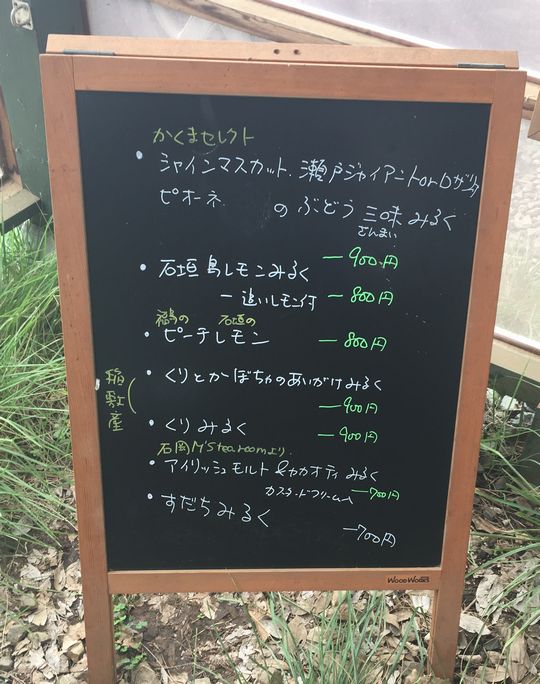 かくまセレクト
・シャインマスカット、瀬戸ジャイアントor
ピオーネ のぶどう三味みるく
ざんまい
ー900円
・石垣島レモンみるく
ー追いレモン付 ー800円
福島の 石垣の
・ピーチレモン ー800円
稲敷産
・くりとかぼちゃのあいがけみるく
ー900円
・くりみるく ー900円
石岡M'S tea roomより
・アイリッシュモルト&カカオティみるく
カスタードクリーム入 ー700円
・すだちみるく
ー700円
WOOD WORKS